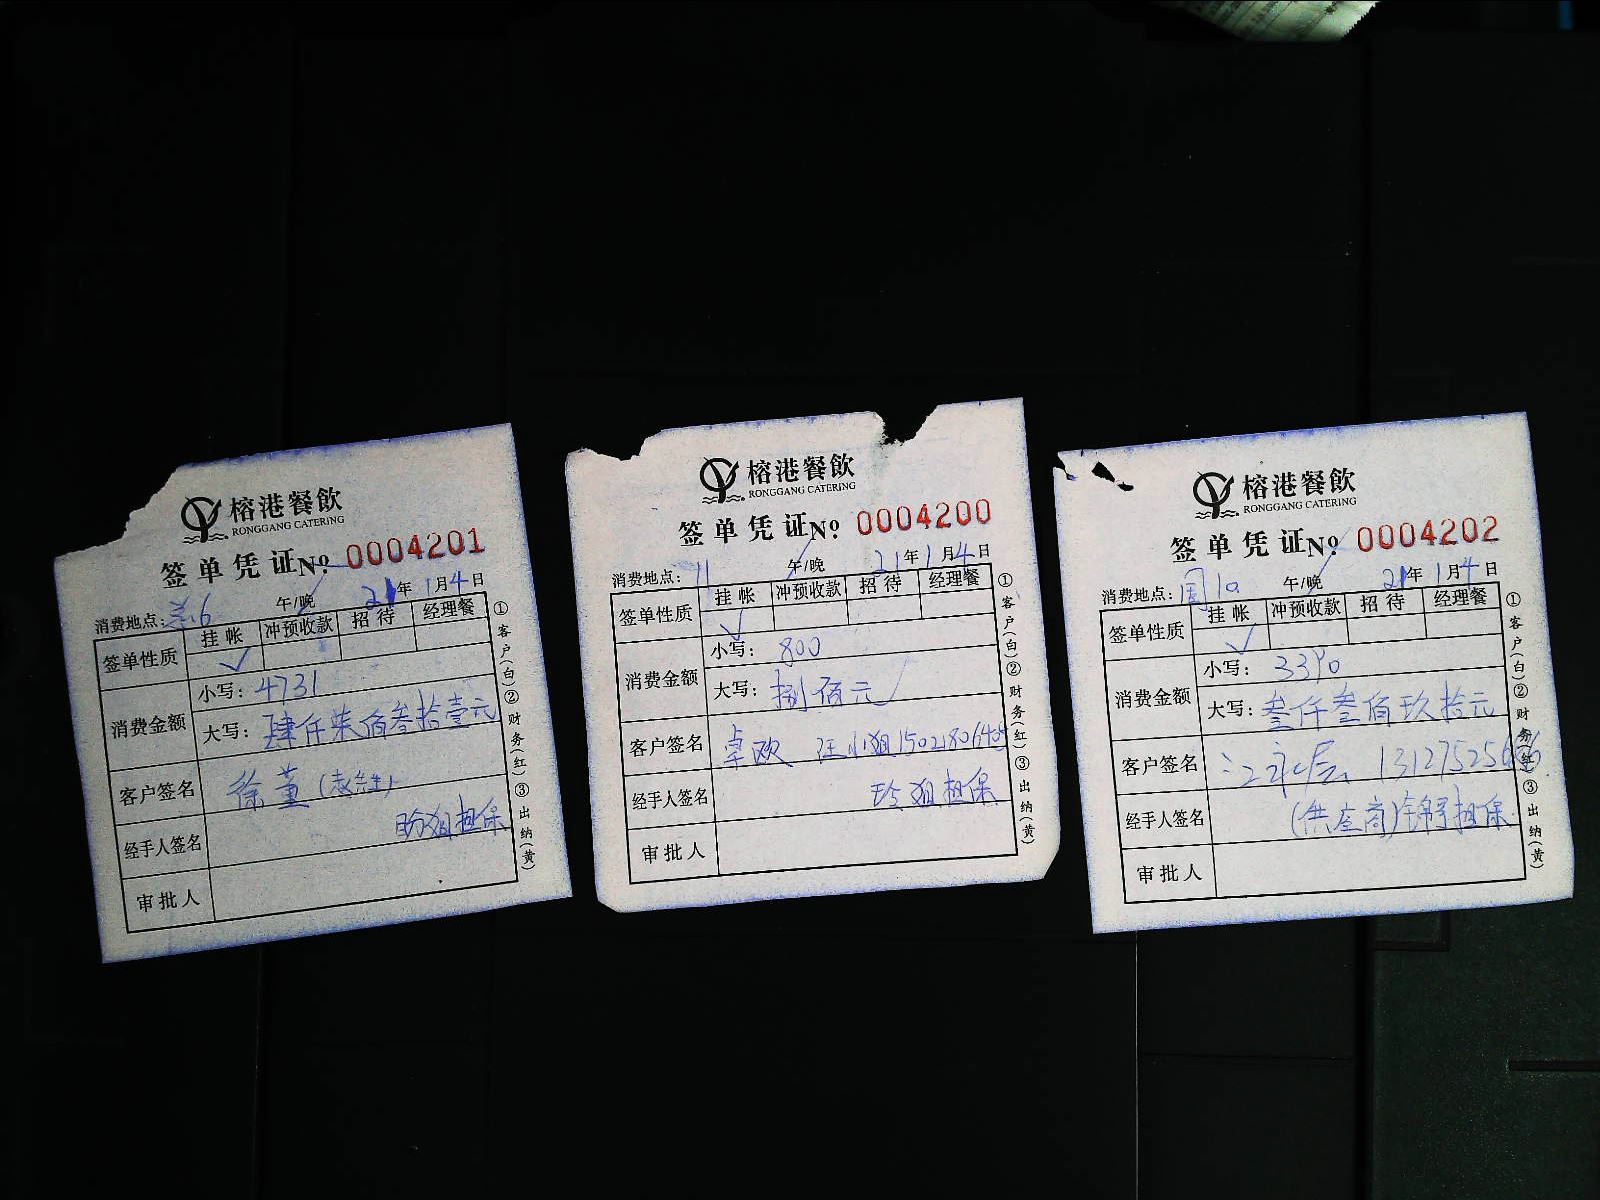 榕港餐飲
RONGGANG CATERING
签单凭证 No. 0004201
消费地点: 兰6 午/晚 21年1月4日
签单性质 挂帐 冲预收款 招待 经理餐
✓
消费金额 小写: 4731
大写: 肆仟柒佰叁拾壹元
客户签名 徐董
经手人签名 担保
审批人
①客户(白)②财务(红)③出纳(黄)
榕港餐飲
RONGGANG CATERING
签单凭证 No. 0004200
消费地点: 11 午/晚 21年1月4日
签单性质 挂帐 冲预收款 招待 经理餐
✓
消费金额 小写: 800
大写: 捌佰元
客户签名 卓欧
经手人签名 担保
审批人
①客户(白)②财务(红)③出纳(黄)
榕港餐飲
RONGGANG CATERING
签单凭证 No. 0004202
消费地点: 午/晚 21年1月4日
签单性质 挂帐 冲预收款 招待 经理餐
✓
消费金额 小写: 3390
大写: 叁仟叁佰玖拾元
客户签名
经手人签名 (供应商) 担保
审批人
①客户(白)②财务(红)③出纳(黄)